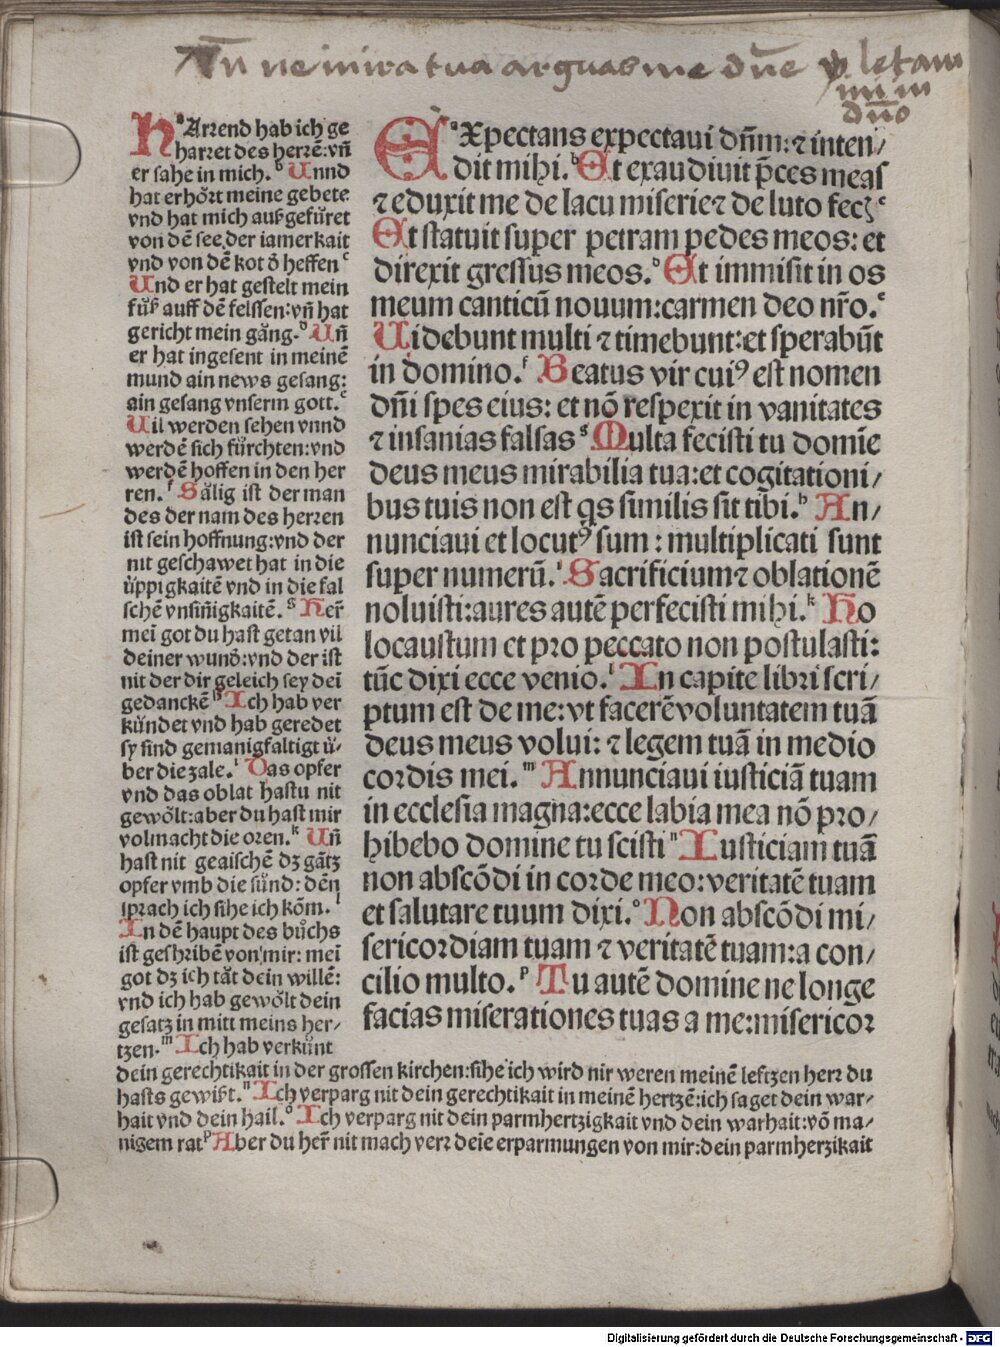 An̄ ne in ira tua arguas me dn̄e ps letam
mi in
dn̄o
HªArrend hab ich ge
harret des herrē: vn̄
er sahe in mich. ᵇ Unnd
hat erhört meine gebete
vnd hat mich außgefüret
von dē see der iamerkait
vnd von dē kot d̄ heffen ᶜ
Und er hat gestelt mein
füß auff dē felssen: vn̄ hat
gericht mein gång. ᵈ Un̄
er hat ingesent in meinē
mund ain news gesang:
ain gesang vnserm gott. ᵉ
Uil werden sehen vnnd
werdē sich fürchten: vnd
werdē hoffen in den her
ren. ᶠ Sålig ist der man
des der nam des herren
ist sein hoffnung: vnd der
nit geschawet hat in die
üppigkaitē vnd in die fal
schē vnsin̄igkaitē. ᵍ Her̄
mei̅ got du hast getan vil
deiner wund̄: vnd der ist
nit der dir geleich sey dei̅
gedanckē ʰ Ich hab ver
kündet vnd hab geredet
sy sind gemanigfaltigt ü/
ber die zale. ⁱ Das opfer
vnd das oblat hastu nit
gewölt: aber du hast mir
volmacht die oren. ᵏ Un̄
hast nit geaischē dz gātz
opfer vmb die sünd: dēn
sprach ich sihe ich kōm. ˡ
In dē haupt des bůchs
ist geshribē von mir: mei̅
got dz ich tåt dein willē:
vnd ich hab gewölt dein
gesatz in mitt meins her/
tzen. ᵐ Ich hab verkünt
dein gerechtikait in der grossen kirchen: sihe ich wird nir weren meinē leftzen herr du
hasts gewißt. ⁿ Ich verparg nit dein gerechtikait in meinē hertzē: ich saget dein war/
hait vnd dein hail. ᵒ Ich verparg nit dein parmhertzigkait vnd dein warhait: vō ma/
nigem rat ᵖ Aber du her̄ nit mach verr deie erparmungen von mir: dein parmherzikait
EªXpectans expectaui dn̄m: ⁊ inten/
dit mihi. ᵇ Et exaudiuit p̄ces meas
⁊ eduxit me de lacu miserie ⁊ de luto fecꝫ ᶜ
Et statuit super petram pedes meos: et
direxit gressus meos. ᵈ Et immisit in os
meum canticū nouum: carmen deo nr̄o. ᵉ
Uidebunt multi ⁊ timebunt: et sperabūt
in domino. ᶠ Beatus vir cuiꝰ est nomen
dn̄i spes eius: et nō respexit in vanitates
⁊ insanias falsas ᵍ Multa fecisti tu domīe
deus meus mirabilia tua: et cogitationi/
bus tuis non est qs similis sit tibi. ʰ An/
nunciaui et locutꝰ sum: multiplicati sunt
super numerū. ⁱ Sacrificium ⁊ oblationē
noluisti: aures autē perfecisti mihi. ᵏ Ho
locaustum et pro peccato non postulasti:
tūc dixi ecce venio. ˡ In capite libri scri/
ptum est de me: vt facerē voluntatem tuā
deus meus volui: ⁊ legem tuā in medio
cordis mei. ᵐ Annunciaui iusticiā tuam
in ecclesia magna: ecce labia mea nō pro/
hibebo domine tu scisti ⁿ Iusticiam tuā
non abscōdi in corde meo: veritatē tuam
et salutare tuum dixi. ᵒ Non abscōdi mi/
sericordiam tuam ⁊ veritatē tuam: a con/
cilio multo. ᵖ Tu autē domine ne longe
facias miserationes tuas a me: misericor
Digitalisierung gefördert durch die Deutsche Forschungsgemeinschaft - DFG